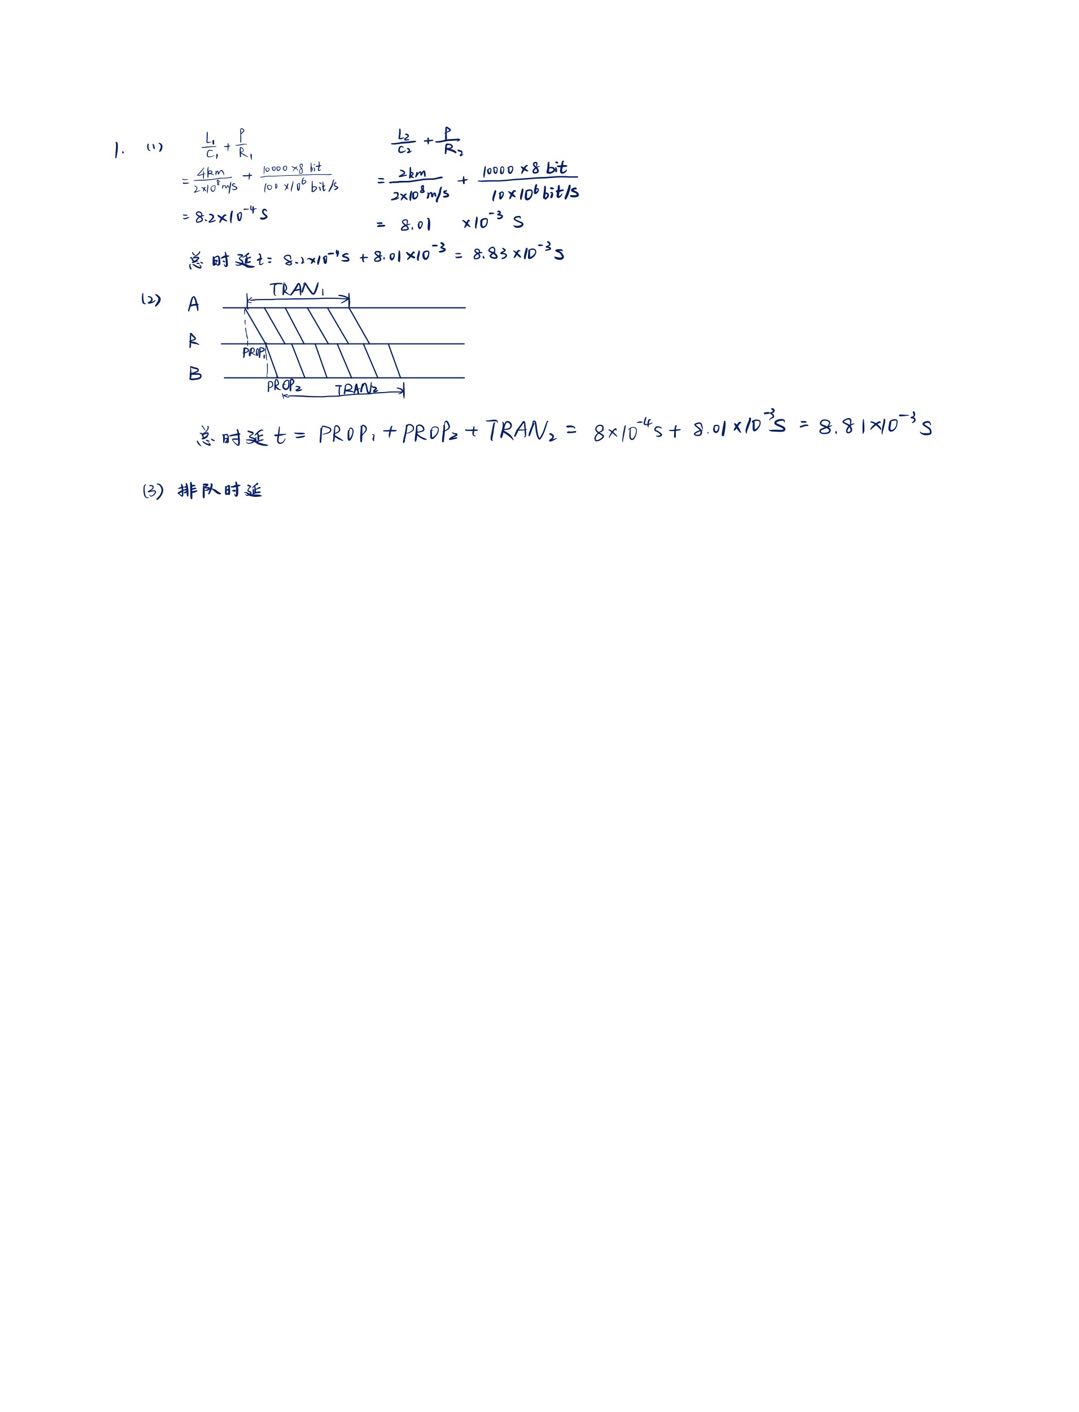 1. (1) L₁/C₁ + P/R₁    L₂/C₂ + P/R₂
= 4km/2×10⁸m/s + 10000×8 bit/100×10⁶ bit/s    = 2km/2×10⁸m/s + 10000×8 bit/10×10⁶bit/s
= 8.2×10⁻⁴ S    = 8.01 ×10⁻³ S
总时延t: 8.2×10⁻⁴S + 8.01×10⁻³ = 8.83×10⁻³S
(2) A TRAN₁
R
PROP₁
B
PROP₂ TRAN₂
总时延 t = PROP₁ + PROP₂ + TRAN₂ = 8×10⁻⁴s + 8.01×10⁻³S = 8.81×10⁻³S
(3) 排队时延